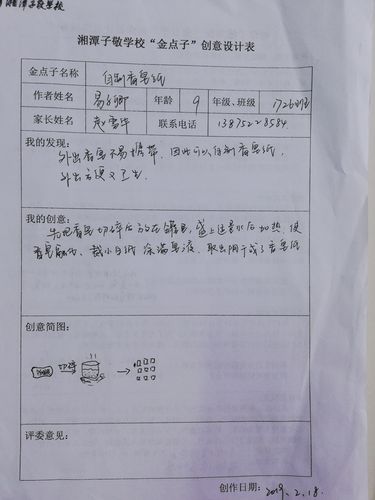 湘潭子敬学校
湘潭子敬学校“金点子”创意设计表
金点子名称 自制香皂纸
作者姓名 易 年龄 9 年级、班级 1726班
家长姓名 赵雪华 联系电话 13875228584
我的发现:
外出香皂不易携带,因此可以自制香皂纸,
外出方便又卫生.
我的创意:
先把香皂切碎后放在罐里,盛上适量水后加热,使
香皂融化、裁小白纸涂满皂液、取出阴干成了香皂纸
创意简图:
切碎
评委意见:
创作日期: 2019.2.18.